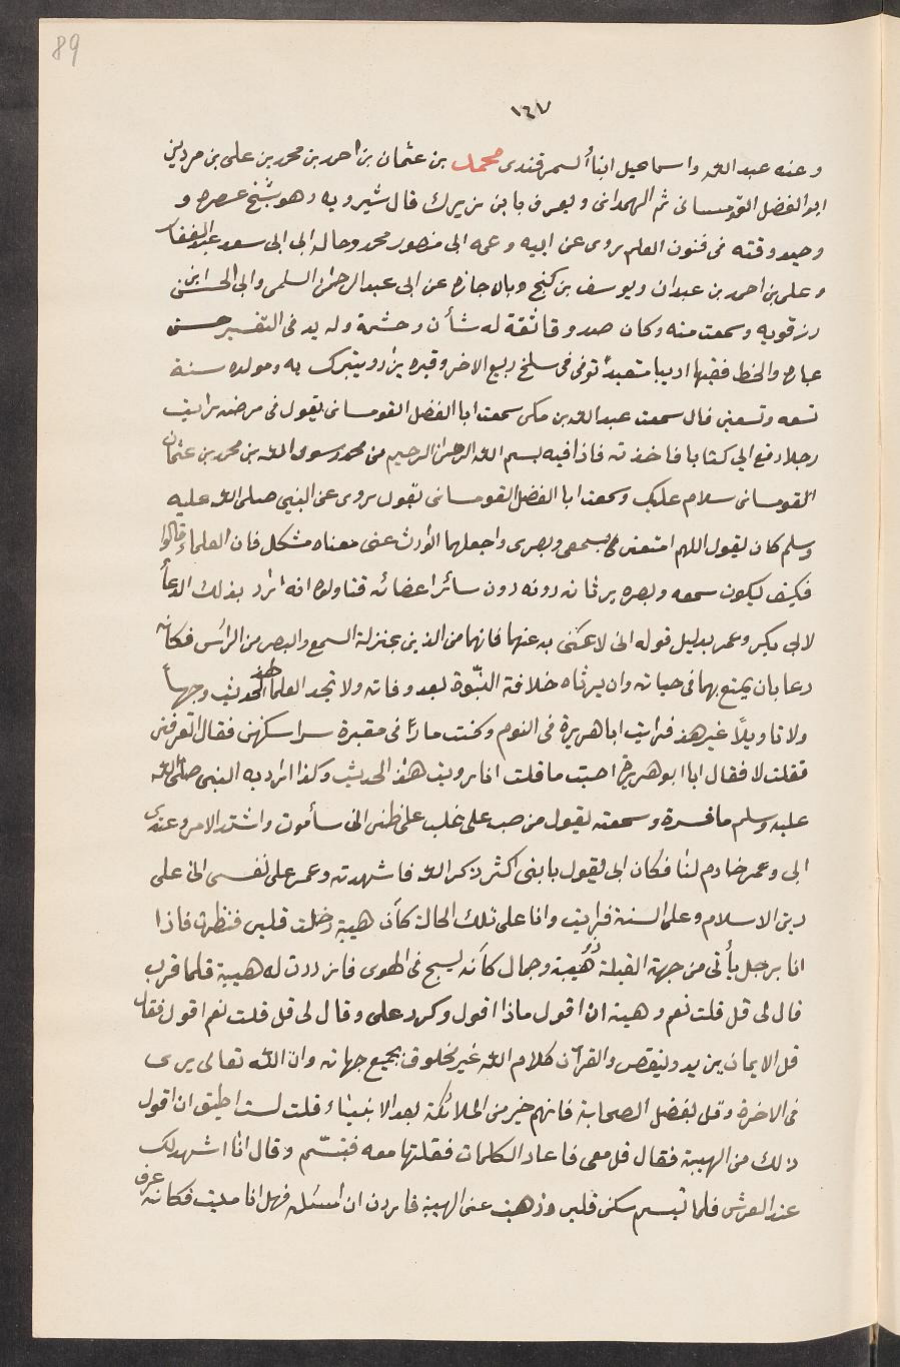 89
١٤٧
وعنه عبد الله واسماعيل ابنا السمرقندى محمد بن عثمان بن احمد بن محمد بن على بن مردين
ابو الفضل القومسانى ثم الهمدانى ويعرف بابن زيرك قال شيرويه وهو شيخ عصره و
وحيد وقته فى فنون العلم يروى عن ابيه وعمه ابى منصور محمد وخاله ابى ابى سعد عبد الغفار
وعلى بن احمد بن عبدان ويوسف بن كنج وبالاجازة عن ابى عبد الرحمن السلمى وابى الحسن ابن
رزقويه وسمعت منه وكان صدوقا ثقة له شأن وحشمة وله يد فى التفسير حسن
عبارة والخط فقيها اديبا متعبدا توفى فى سلخ ربيع الاخر وقبره يزار ويتبرك به ومولده سنة
تسعه وتسعين قال سمعت عبد الله بن مكى سمعت ابا الفضل القومسانى يقول فى مرضه رايت
رجلا دفع الى كتابا فاخذته فاذا فيه بسم الله الرحمن الرحيم من محمد رسول الله بن محمد بن عثمان
القومسانى سلام عليك وسمعت ابا الفضل القومسانى يقول يروى عن النبى صلى الله عليه
وسلم كان يقول اللهم امتعنى بسمعى وبصرى واجعلها الوارث عنى معناه مشكل فان العلماء قالوا
فكيف يكون سمعه وبصره يرثانه دونه دون سائر اعضائه فتاولوه انه اراد بذلك الدعأ
لابى بكر وعمر بدليل قوله انى لا غنى به عنهما فانهما من الذين بمنزلة السمع والبصر من الرأس فكانه
دعا بان يمتع بهما فى حياته وان يرثاه خلافة النبوة بعد وفاته ولا تجد العلما لهذا الحديث وجهاً
ولا تاويلاً غير هذ فرايت ابا هريرة فى النوم وكنت مارًا فى مقبرة سراسكهن فقال اتعرفنى
فقلت لا فقال ابا ابو هريرة اصبت ما قلت انا رويت هذ الحديث وكذا اراد به النبى صلى الله
عليه وسلم ما فسرة وسمعته يقول مرضت غلب على ظنى انى سأموت واشتد الامر وعندى
ابى وعمر خادم لنا فكان ابى يقول يا بنى اكثر ذكر الله فاشهدته وعمر على نفسى انى على
دين الاسلام وعلى السنة فرايت وانا على تلك الحالة كأن هيبة دخلت قلبى فنظرت فاذا
انا برجل يأتى من جهة القبلة ذو هيبة وجمال كأنه يسبح فى الهوى فازددت له هيبة فلما قرب
قال لى قل قلت نعم وهبته ان اقول ماذا اقول وكرر على وقال لى قل قلت نعم اقول فقال
قل الايمان يزيد وينقص والقرآن كلام الله غير مخلوق بجميع جهاته وان الله تعالى يرى
فى الاخرة وقل بفضل الصحابة فانهم خير من الملائكة بعد الانبياء قلت لست اطيق ان اقول
ذلك من الهيبة فقال قل معى فاعاد الكلمات فقلتها معه فتبسّم وقال انا اشهد لك
عند العرش فلما تبسم سكن قلبى وذهبت عنى الهيبة فاردت ان اسئله فهل انا ميت فكانه عرف